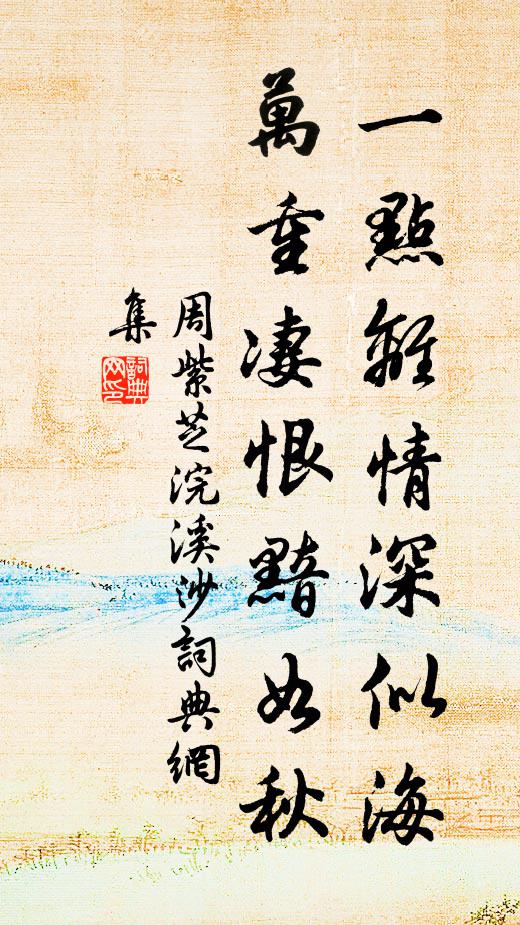 一點離情深似海
萬重凄恨黯如秋
周紫芝浣溪沙詞典網
集
詞典
网印